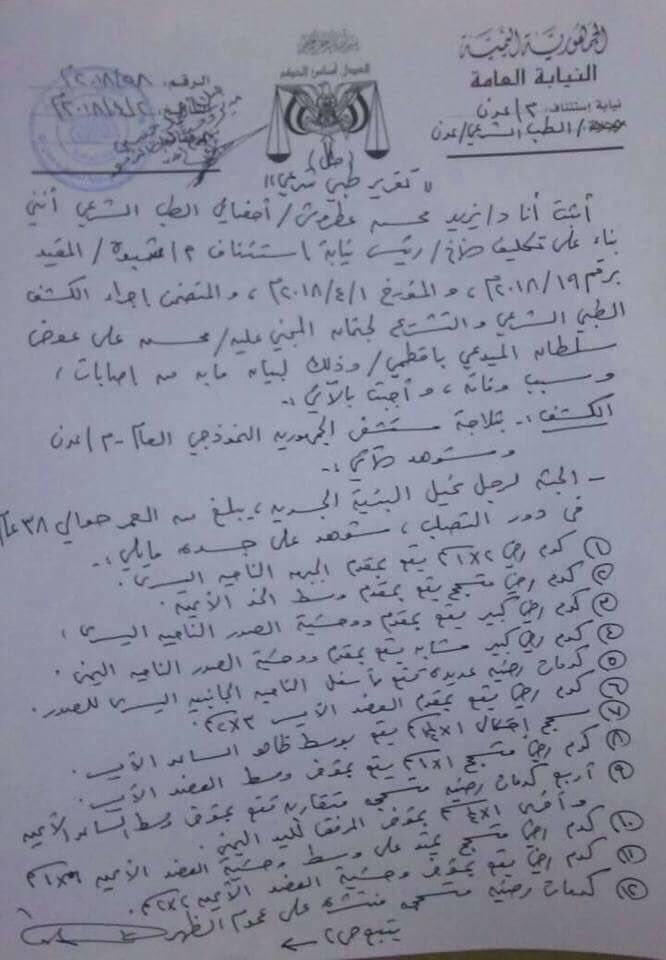 الجمهورية اليمنية
النيابة العامة
نيابة إستئناف م/عدن
الطب الشرعي/عدن
العدل أساس الحكم
الرقم: ٢٠١٨/٥٨م
٢٠١٨/٤/٢م
(ص١)
" تقرير طبي شرعي "
أثبت أنا د/ يزيد محسن / أخصائي الطب الشرعي أنني
بناء على تكليف / رئيس نيابة استئناف م / المقيد
برقم ٢٠١٨/١٩م، و المؤرخ ٢٠١٨/٤/١م، و المتضمن إجراء الكشف
الطبي الشرعي و التشريح لجثمان المجني عليه/ محسن علي عوض
سلطان باقطمي/ وذلك لبيان مابه من إصابات،
و سبب وفاته، و أجبت بالآتي :-
الكشف :- بثلاجة مستشفى الجمهورية النموذجي العام - م/عدن
و شوهد كالآتي :-
- الجثة لرجل نحيل البنية الجسدية، يبلغ من العمر حوالي ٣٨ عام
في دور التصلب، شوهد على جسده مايلي :-
١) كدم رضي ٢×١سم يقع بمقدم الجبهه الناحيه اليسرى.
٢) كدم رضي متسحج يقع بمقدم وسط الخد الأيمن.
٣) كدم رضي كبير يقع بمقدم ووحشية الصدر الناحيه اليسرى،
٤) كدم رضي كبير مشابه يقع بمقدم ووحشية الصدر الناحيه اليمنى.
٥) كدمات رضيه عديدة تقع بأسفل الناحيه الجانبيه اليسرى للصدر.
٦) كدم رضي يقع بمقدم العضد الأيسر ٣×٢سم.
٧) سحج إحتكاكي يقع بوسط ظاهر الساعد الأيسر.
٨) كدم رضي متسحج ١×١سم يقع بمؤخر وسط العضد الأيسر.
٩) أربع كدمات رضيه متسحجه متقاربه تقع بمؤخر وسط الساعد الأيمن
و أخرى بمؤخر المرفق لليد اليمنى.
١٠) كدم رضي متسحج يمتد على وسط وحشية العضد الأيمن
١١) كدم رضي يقع بمؤخر وحشية العضد الأيمن ٢×٢سم.
١٢) كدمات رضيه متسحجه منتشره على عموم الظهر
يتبع ص٢ ←